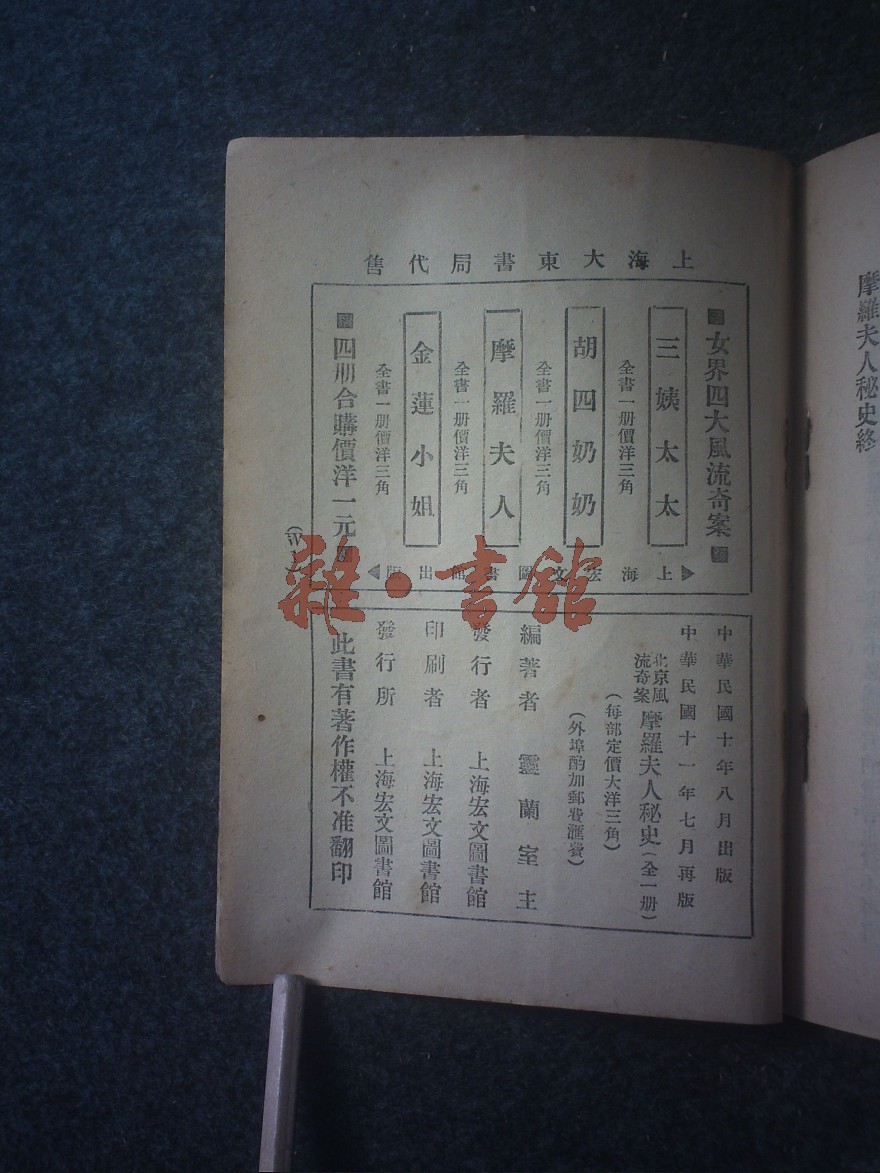 摩羅夫人秘史終
上海大東書局代售
女界四大風流奇案
三姨太太
全書一册價洋三角
胡四奶奶
全書一册價洋三角
摩羅夫人
全書一册價洋三角
金蓮小姐
全書一册價洋三角
四册合購價洋一元
上海宏文圖書館出版
中華民國十年八月出版
中華民國十一年七月再版
北京風流奇案 摩羅夫人秘史(全一册)
(每部定價大洋三角)
(外埠酌加郵費滙費)
編著者 靈蘭室主
發行者 上海宏文圖書館
印刷者 上海宏文圖書館
發行所 上海宏文圖書館
此書有著作權不准翻印
雜·書館